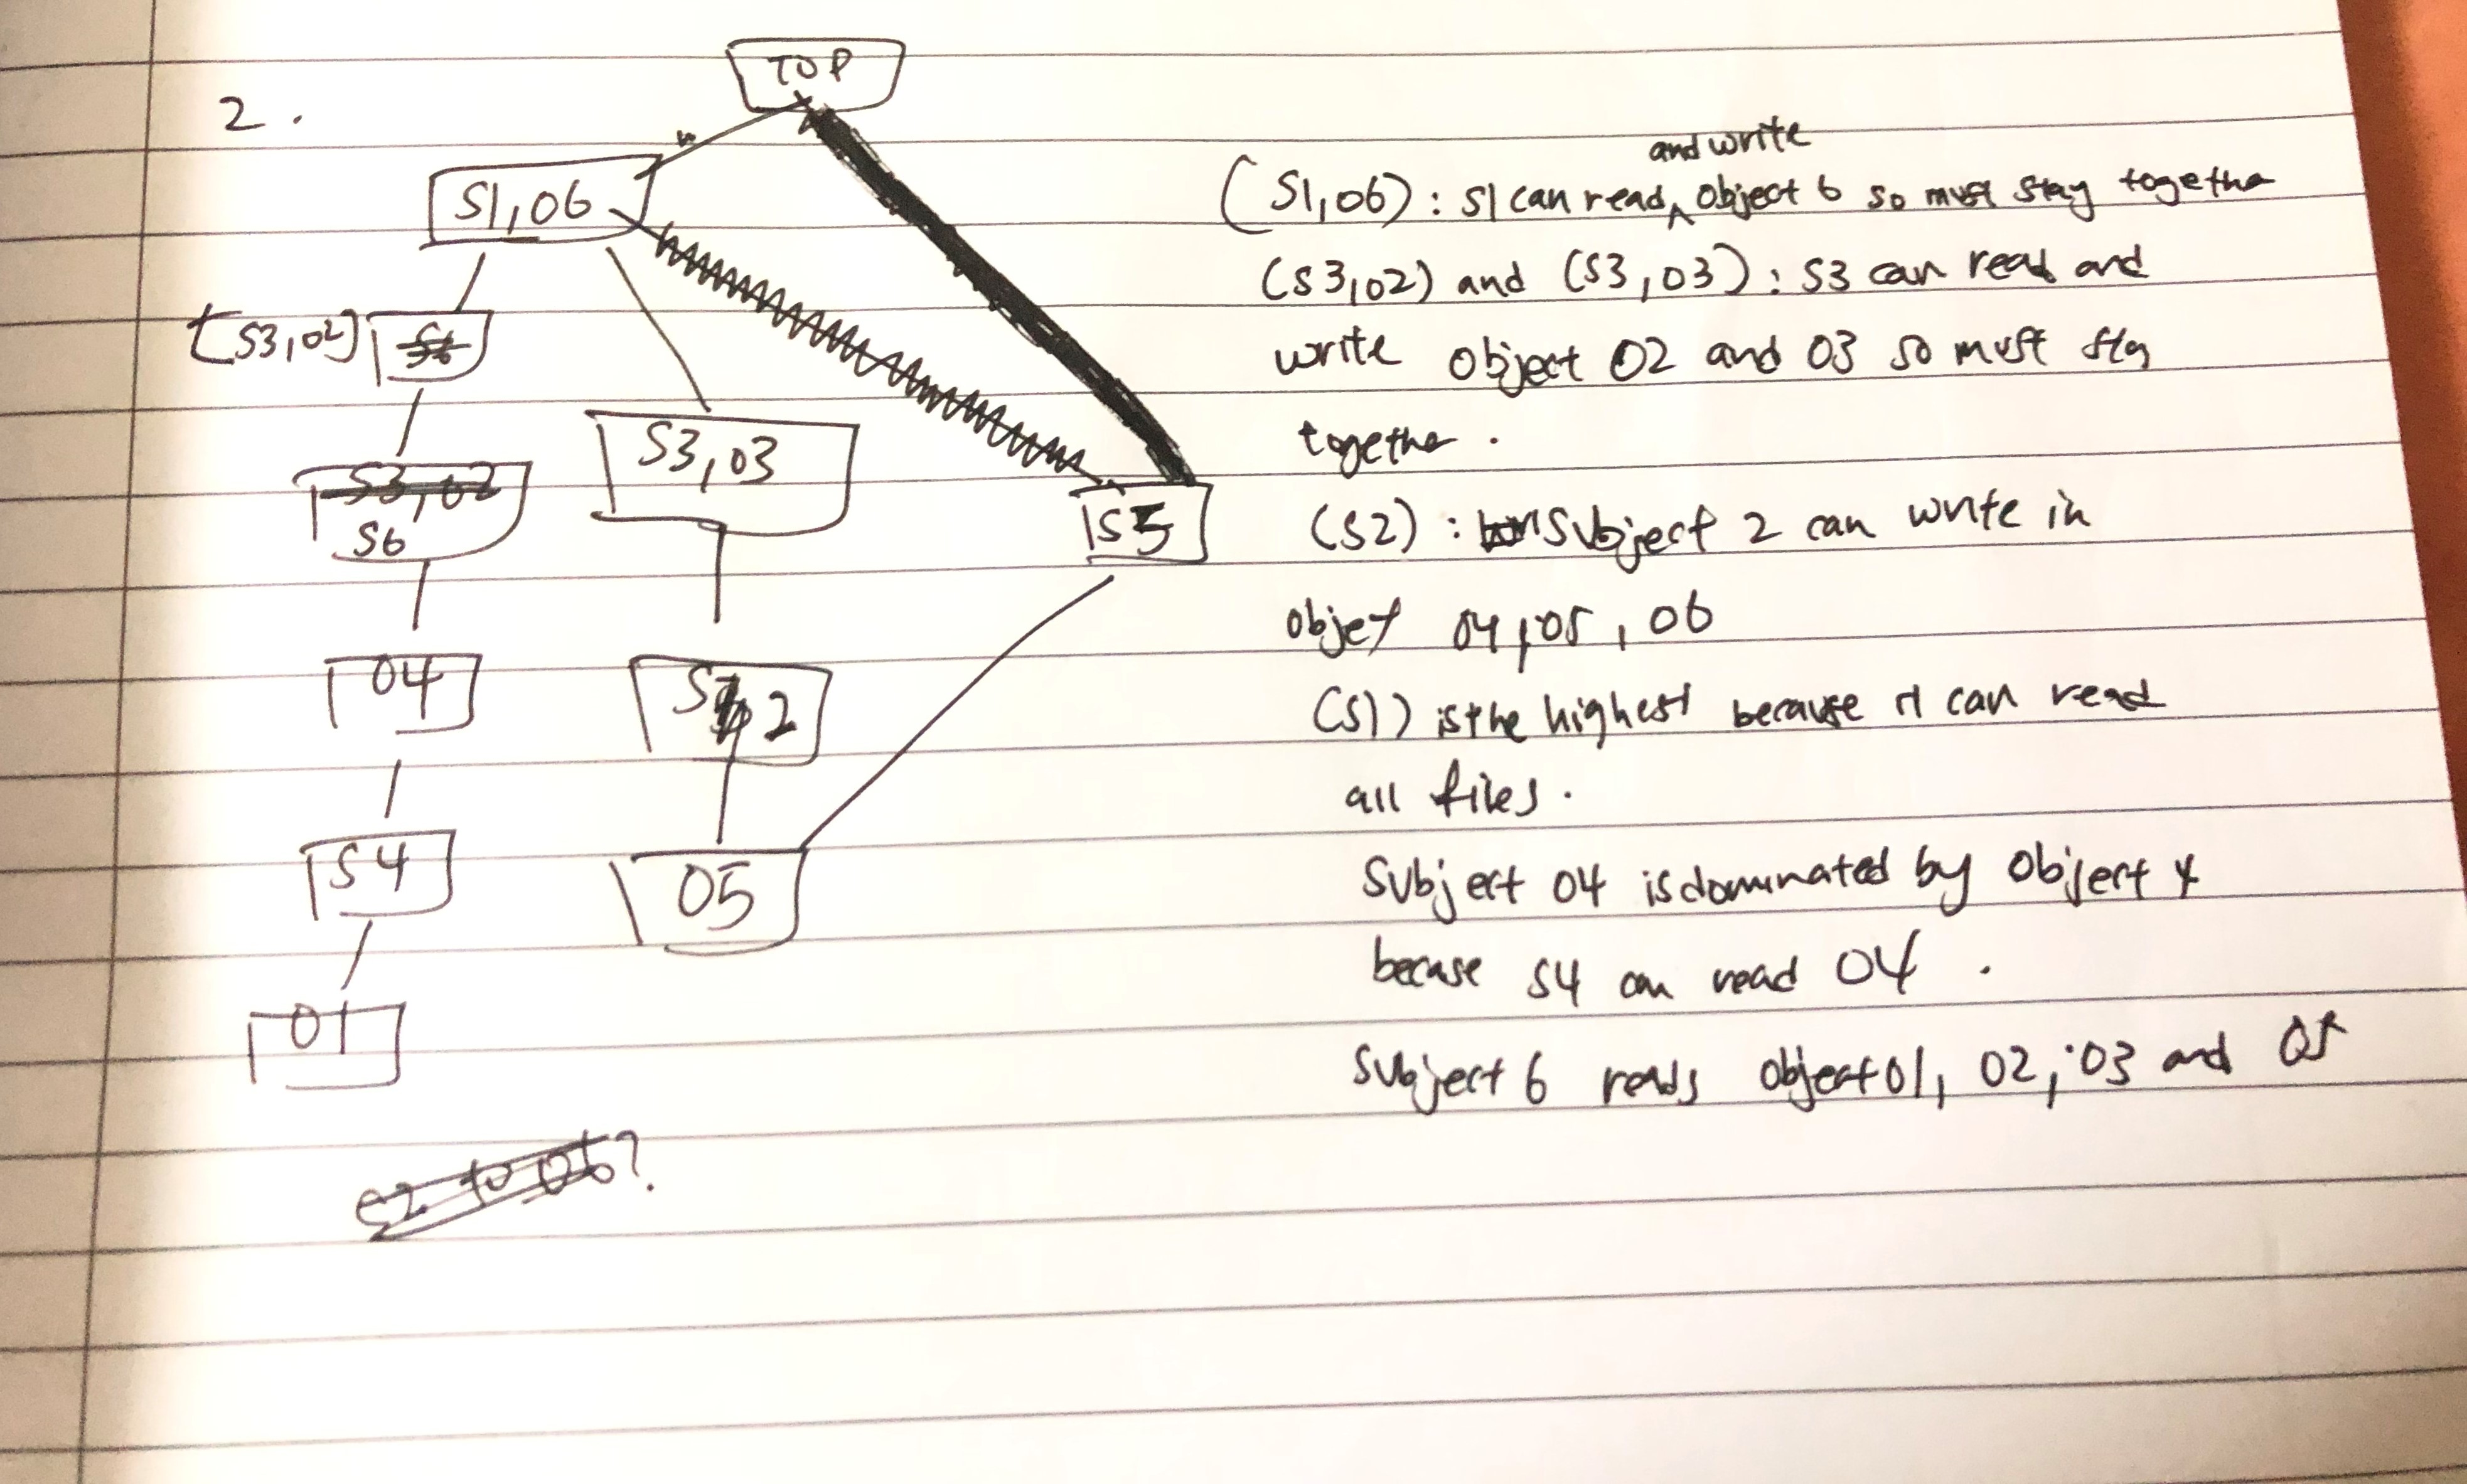 2.
TOP
S1,06
[S3,02]
S6
S3,02
S6
S3,03
S5
04
S2
S4
05
01
S2 to 06?
and write
(S1,06) : S1 can read ^ object 6 so must stay togethe
(S3,02) and (S3,03) : S3 can read and
write object 02 and 03 so must sty
togethe .
(S2) : Subject 2 can write in
objet 04, 05, 06
(S1) is the highest because it can read
all files .
Subject 04 is dominated by Object 4
becuse S4 can read 04 .
Subject 6 reads object 01, 02, 03 and 05